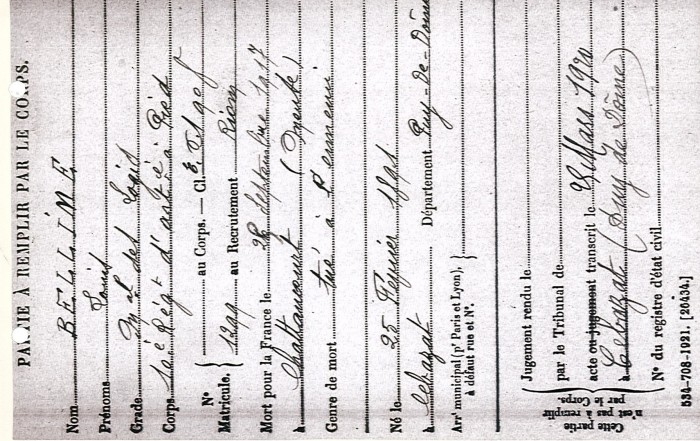 PARTIE À REMPLIR PAR LE CORPS.
Nom BELLIME
Prénoms Louis
Grade Mal des Logis
Corps 10e Régt d'artie à Pied
N° Matricule. { au Corps. — Cl.
1399 au Recrutement Riom
Mort pour la France le septembre 1917
à Chattancourt (Meuse)
Genre de mort tué à l'ennemi
Né le 25 Février 1891
à Cébazat Département Puy-de-Dôme
Arrt municipal (pr Paris et Lyon),
à défaut rue et N°.
Cette partie n'est pas à remplir par le Corps.
Jugement rendu le
par le Tribunal de
acte ou jugement transcrit le Mars 1920
à Cébazat (Puy de Dôme)
N° du registre d'état civil
534-708-1921. [20434.]